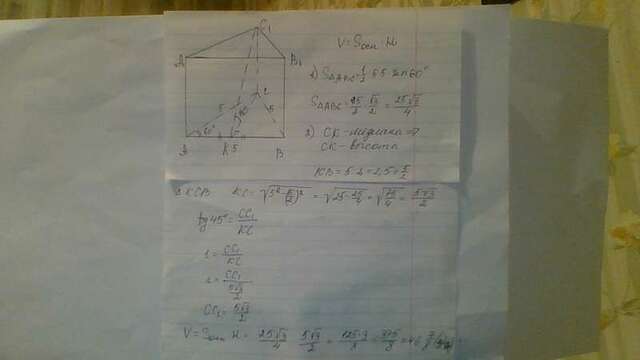 C₁
A₁
B₁
C
5
5
60°
A
K
5
B
V = Sосн · H
1) SΔABC = 1/2 · 5·5 · sin 60°
SΔABC = 25/2 · √3/2 = 25√3/4
2) CK - медиана ⇒
CK - высота
KB = 5 : 2 = 2,5 = 5/2
Δ KCB KC = √(5² - (5/2)²) = √(25 - 25/4) = √(75/4) = 5√3/2
tg 45° = CC₁/KC
1 = CC₁/KC
1 = CC₁/(5√3/2)
CC₁ = 5√3/2
V = Sосн · H = 25√3/4 · 5√3/2 = 125·3/8 = 375/8 = 46 7/8